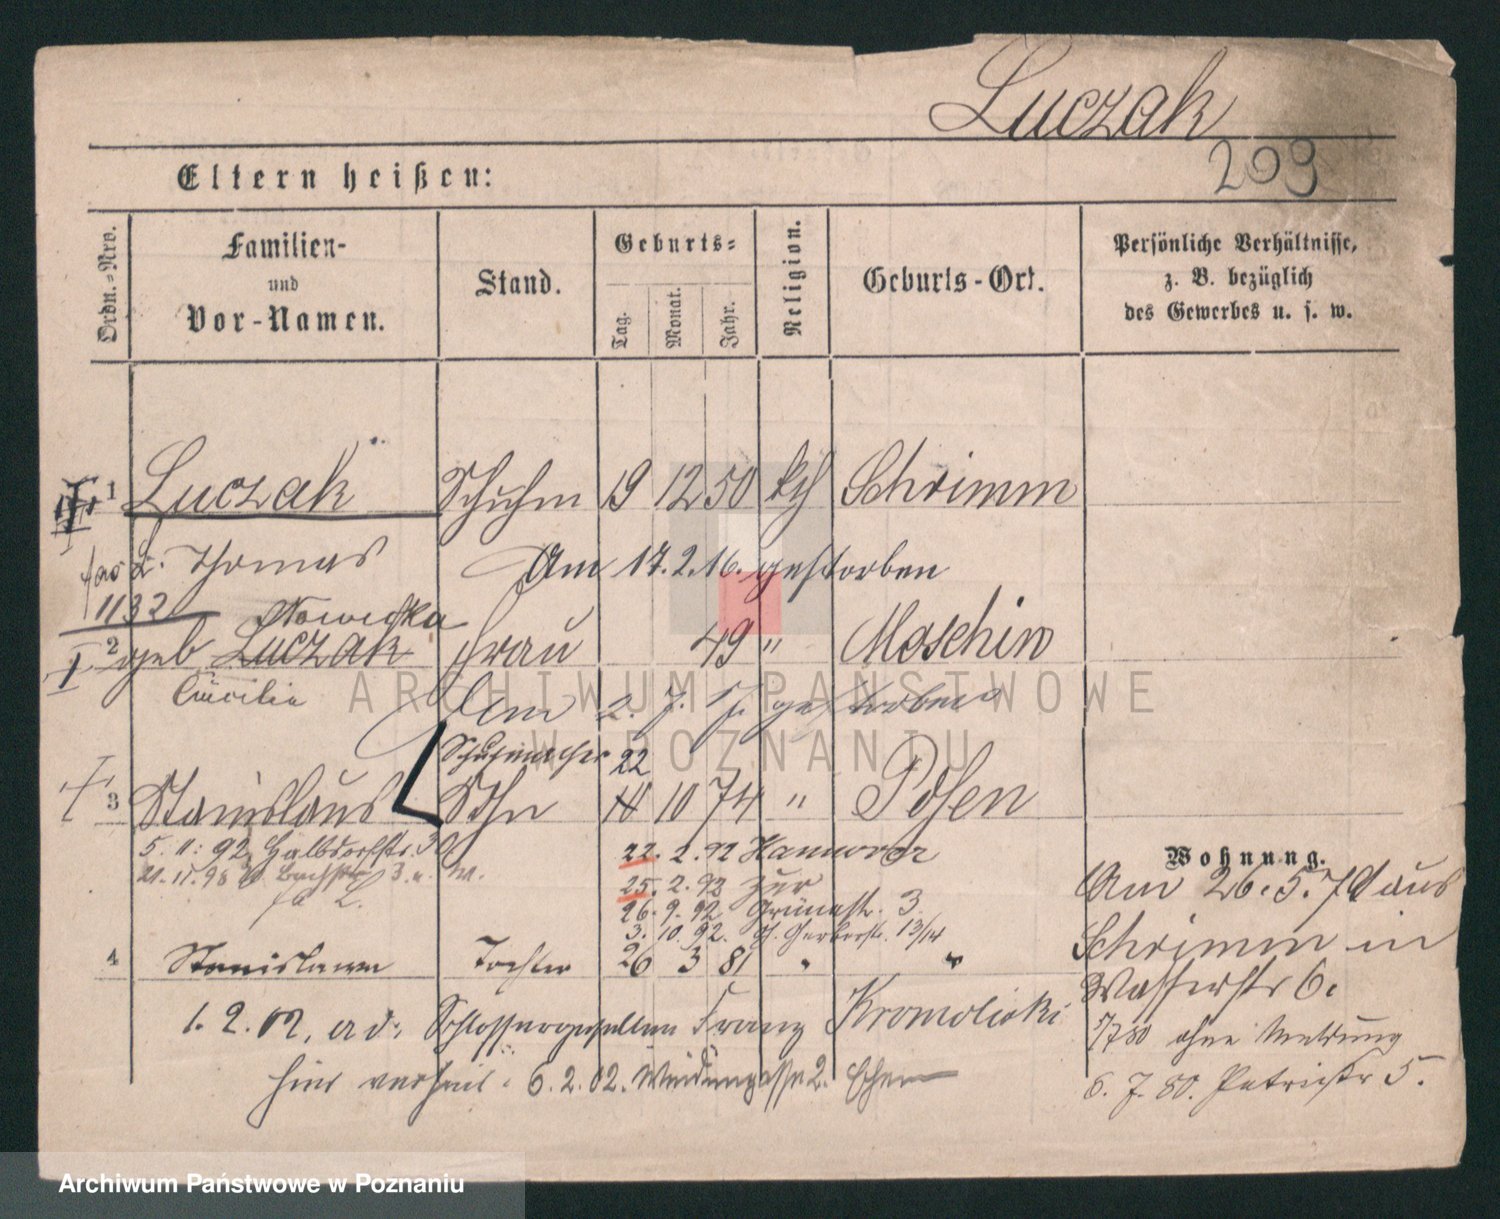 Luczak
209
Eltern heißen:
Ordn.-Nro.
Familien-
und
Vor-Namen.
Stand.
Geburts-
Tag.
Monat.
Jahr.
Religion.
Geburts-Ort.
Persönliche Verhältnisse,
z. B. bezüglich
des Gewerbes u. s. w.
1 Luczak Schuhm 19 12 50 kth Schrimm
Thomas Am 17.2.16. gestorben
1132
Nowicka
2 geb Luczak Frau 49 " Moschin
Cäcilia Am 2. 7. gestorben
ARCHIWUM PAŃSTWOWE
W POZNANIU
Schuhmacher 22
3 Stanislaus Sohn 10 74 " Posen
5. 11. 92 Halbdorfstr. 30 22. 2. 92 Hannover
25. 2. 92 zur
26. 9. 92 Grünestr. 3
3. 10. 92. Gr. Gerberstr. 13/14
4 Stanislawa Tochter 26 3 81 " "
1. 2. 02. a d: Schlossergesellen Franz Kromolicki
hier verheir. 6. 2. 02.
Wohnung.
Am 26. 5. 79 aus
Schrimm in
Wasserstr 6.
7/7 80 ohne Meldung
6. 7. 80. Petristr 5.
Archiwum Państwowe w Poznaniu